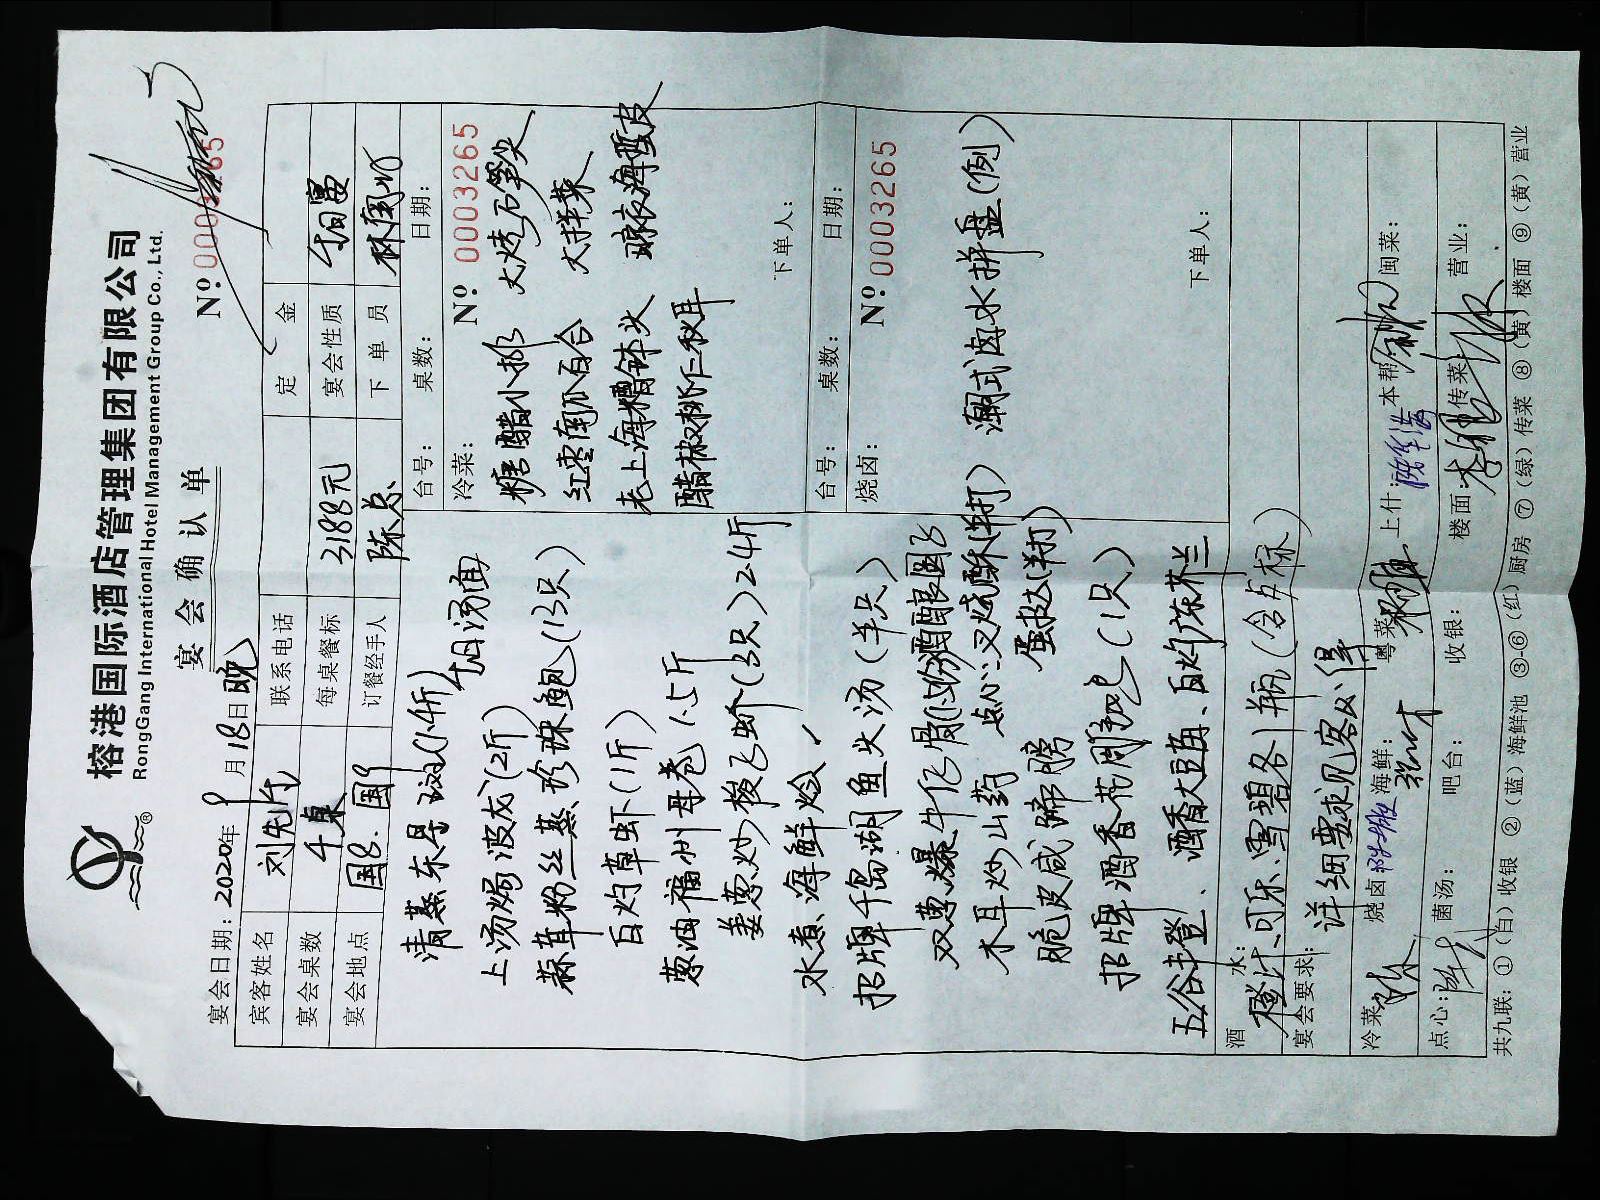 榕港国际酒店管理集团有限公司
RongGang International Hotel Management Group Co., Ltd.
宴会确认单
宴会日期：2020年9月18日晚
Nº 0003265
宾客姓名 刘先生 联系电话 定金
宴会桌数 4桌 每桌餐标 3188元 宴会性质
宴会地点 国8.国9 订餐经手人 陈总 下单员
清蒸东星斑(1.4斤)
上汤焗波龙(2斤) 汤面
蒜茸粉丝蒸珍珠鲍(13只)
白灼草虾(1斤)
葱油福州母卷 1.5斤
姜葱炒梭飞虾(3只)2.4斤
水煮海鲜烩 ✓
招牌千岛湖鱼头汤(半只)
双葱爆牛仔骨
木耳炒山药 点心：叉烧酥(半打)
脆皮咸蹄膀 蛋挞(半打)
招牌酒香花雕鸡(1只)
五谷丰登、酒香大豆苗、白灼芥兰
台号： 桌数： 日期：
冷菜： Nº 0003265
糖醋小排 大烤石笋尖
红枣南瓜百合 大拌菜
老上海糟钵头 琼衣海蜇皮
醋椒桃仁秋耳
下单人：
台号： 桌数： 日期：
烧卤： Nº 0003265
潮式卤水拼盘(例)
下单人：
酒水：
橙汁、可乐、雪碧各1瓶(含每标)
宴会要求：
详细要求见客公得
冷菜： 烧卤： 海鲜： 粤菜： 上什： 本帮： 闽菜：
点心： 菌汤： 吧台： 收银： 楼面： 传菜： 营业：
共九联：①(白)收银 ②(蓝)海鲜池 ③-⑥(红)厨房 ⑦(绿)传菜 ⑧(黄)楼面 ⑨(黄)营业